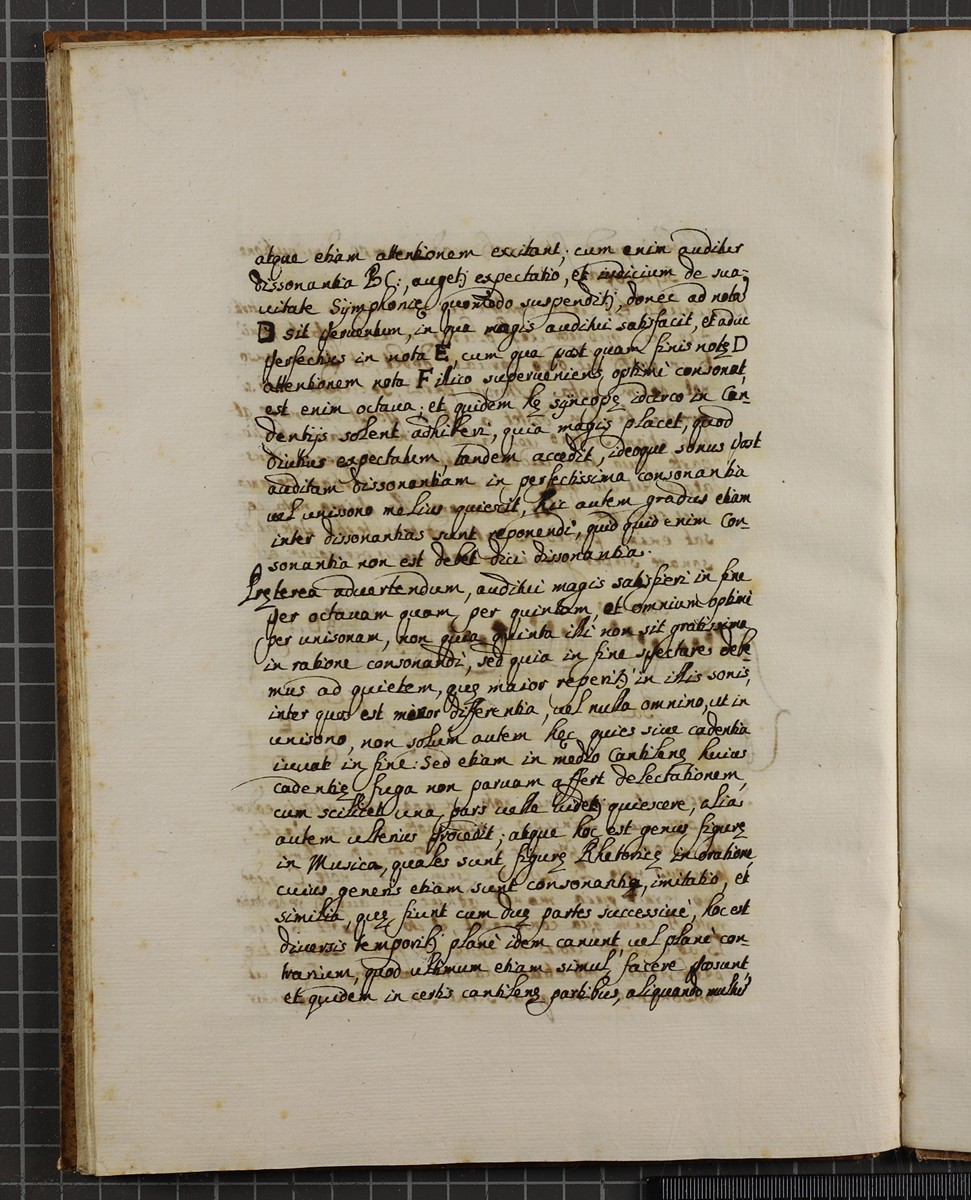 atque etiam attentionem excitant; cum enim auditur
dissonantia BC:, augetꝫ expectatio, et iudicium de sua-
uitate Symphonię quomodo suspenditꝫ, donec ad notā
D sit peruentum, in qua magis auditui satisfacit, et aduc
perfectius in nota E, cum qua post quam finis notę D
attentionem nota F illico superueniens optimè consonat,
est enim octaua; et quidem hę syncopę idcirco in Can-
dentijs solent adhiberi, quia magis placet, quod
diutius expectatum, tandem accedit, ideoque sonus post
auditam dissonantiam in perfectissima consonantia
uel unisono melius quiescit, hic autem gradus etiam
inter dissonantias sunt reponendi, quid quid enim Con-
sonantia non est debet dici dissonantia.
Pręterea aduertendum, auditui magis satisfieri in fine
per octauam quam, per quintam, et omnium optimè
per unisonam, non quia quinta illi non sit gratissima
in ratione consonandi, sed quia in fine spectare debe-
mus ad quietem, quę maior reperitꝫ in illis sonis,
inter quos est minor differentia, uel nulla omnino, ut in
unisono, non solum autem hęc quies siue cadentia
iuuat in fine: Sed etiam in medio Cantilenę huius
cadentię fuga non paruam affert delectationem,
cum scilicet una pars uelle uidetꝫ quiescere, alia
autem ulterius procedit; atque hoc est genus figurę
in Musica, quales sunt figurę Rhetoricę in oratione
cuius generis etiam sunt consonantię, imitatio, et
similia, quę fiunt cum duę partes successiuè, hoc est
diuersis temporibꝫ planè idem canunt, uel planè con-
trarium, quod ultimum etiam simul facere possunt,
et quidem in certis cantilenę partibus, aliquando multū